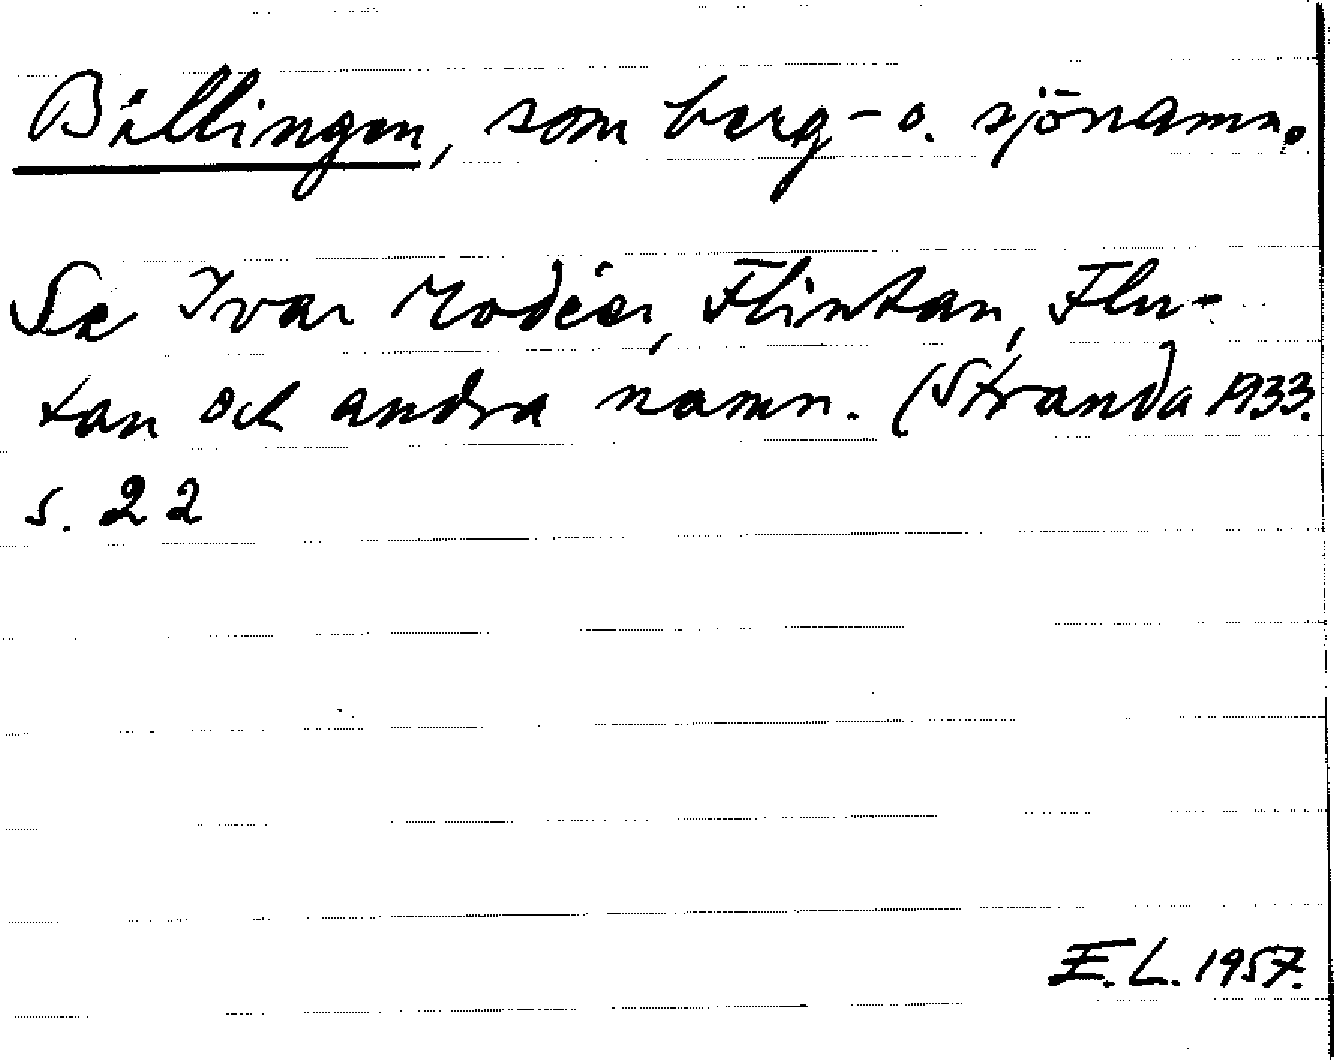 Billingen, som berg- o. sjönamn.
Se Ivar Modéer, Flintan, Flu-
tan och andra namn. (Stranda 1933.
s. 22
E.L. 1957.